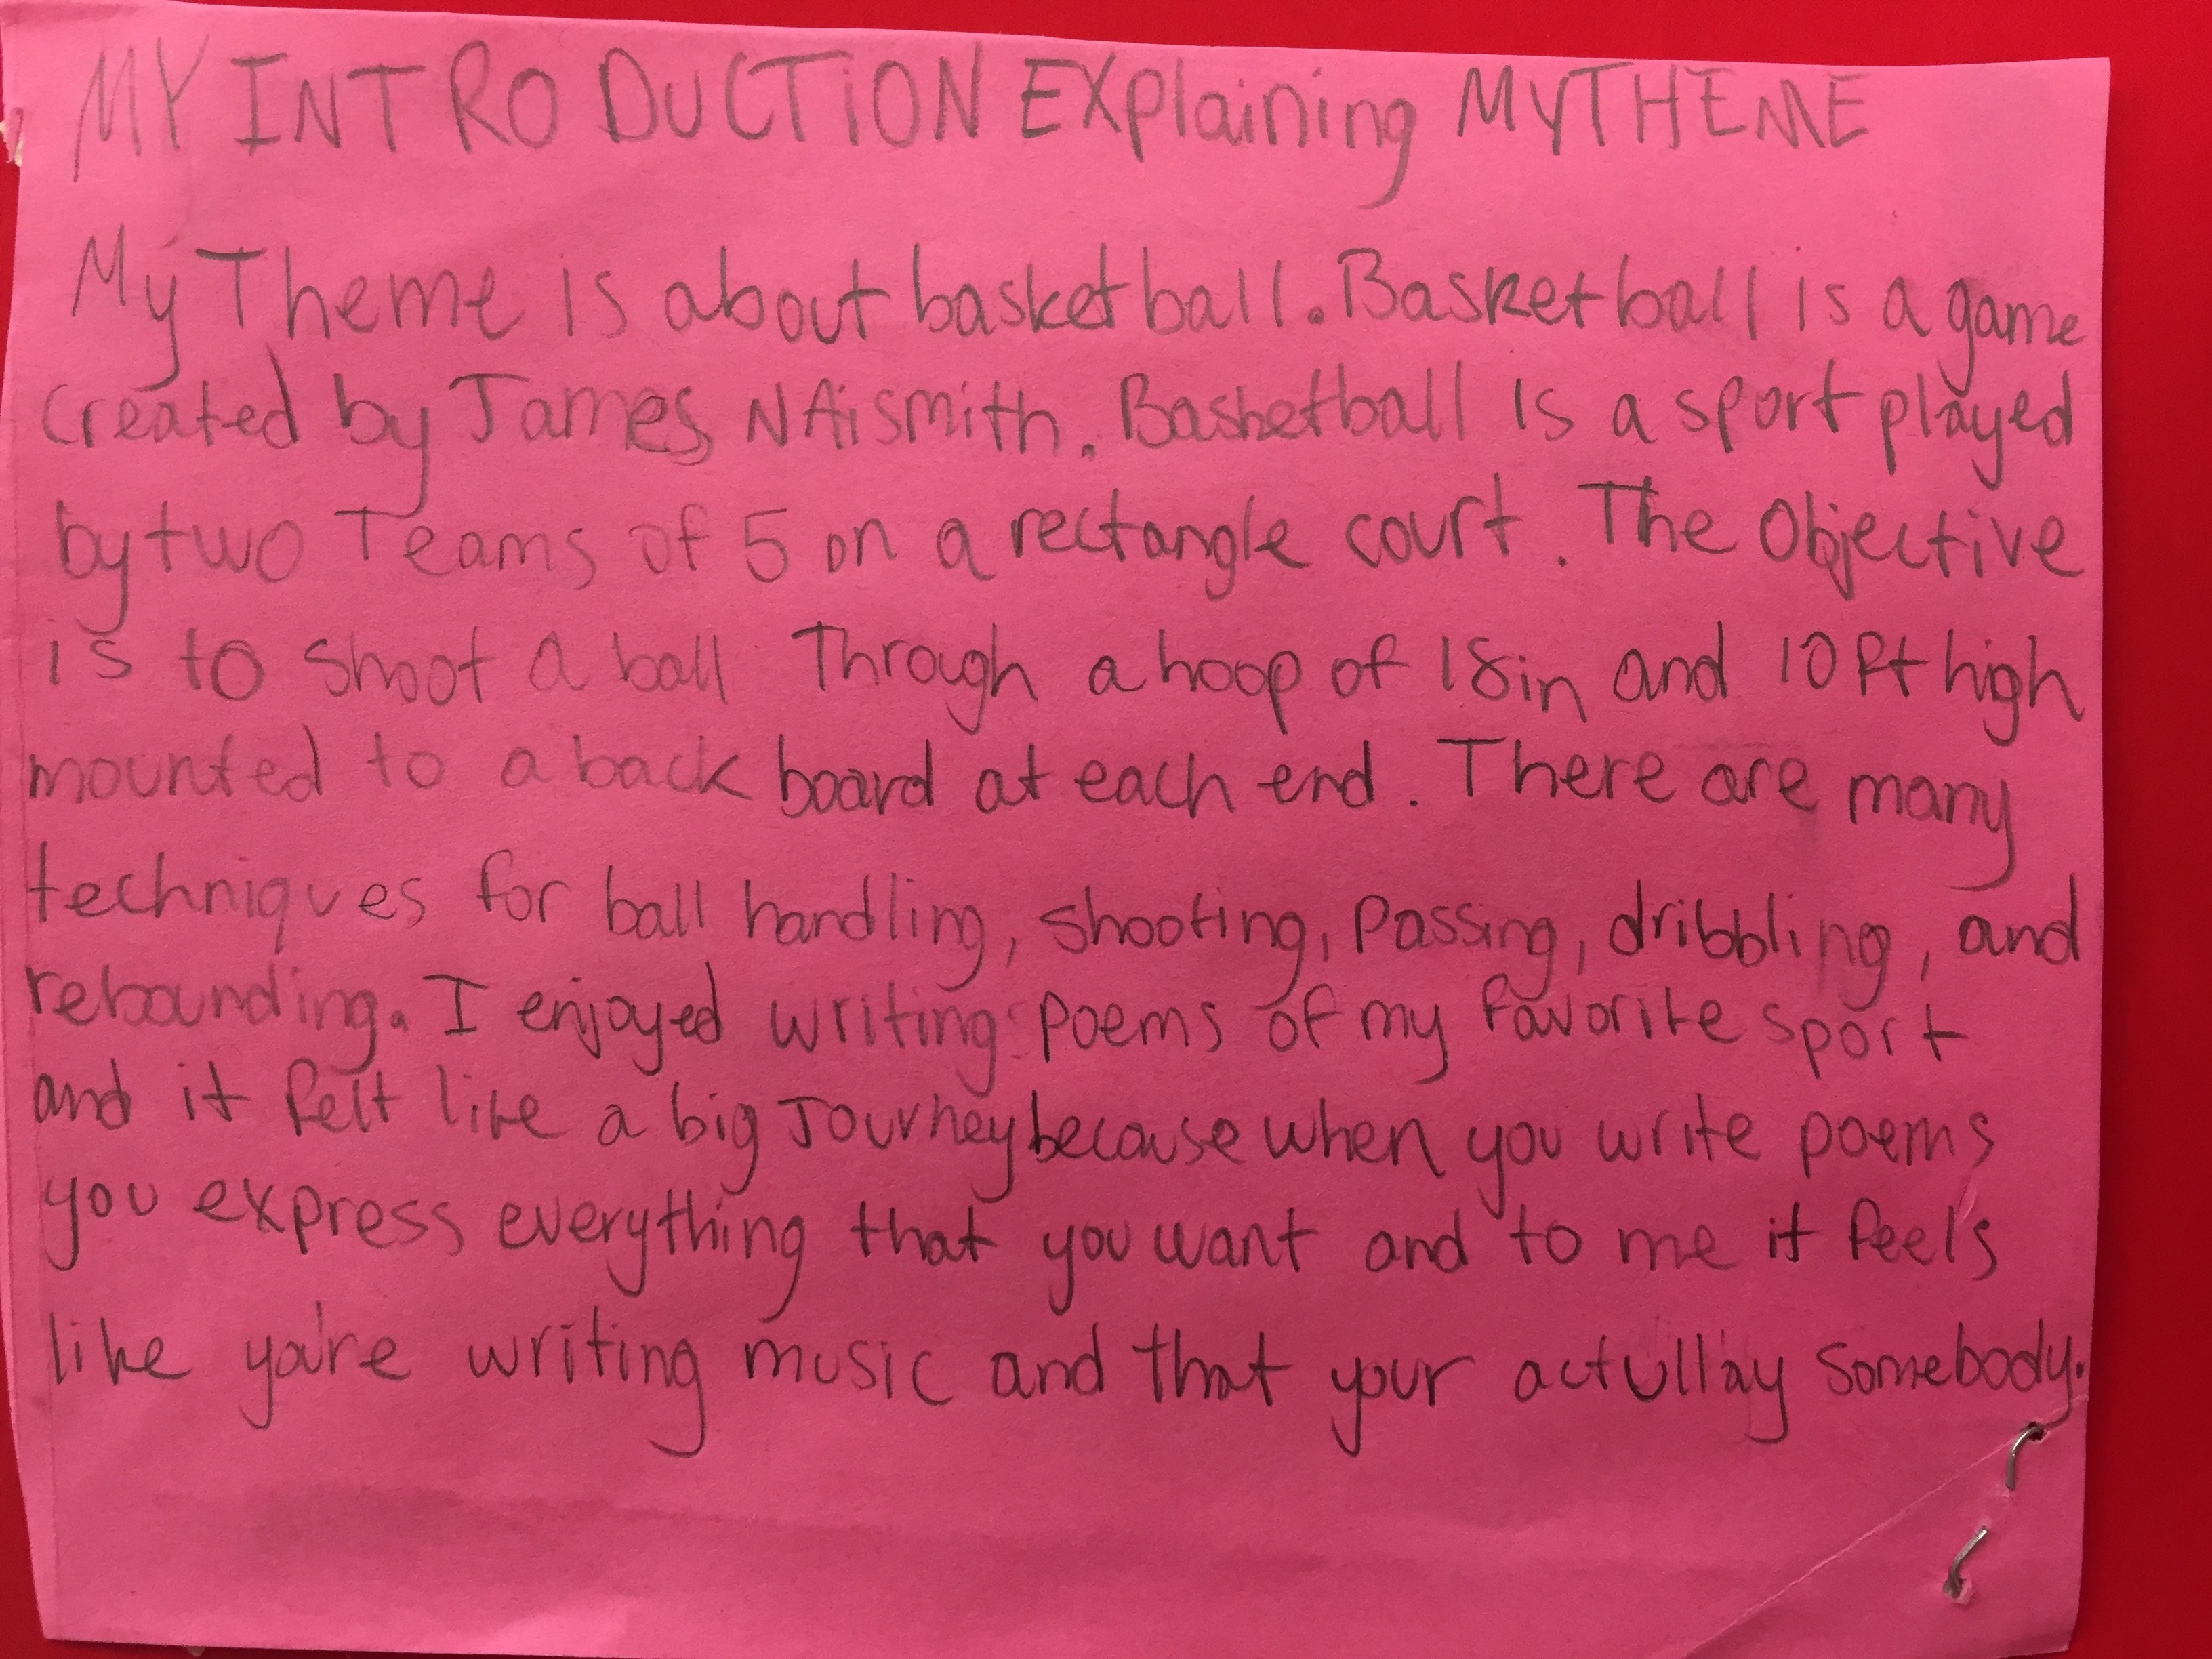 MY INTRODUCTION EXplaining MY THEME
My Theme is about basketball. Basketball is a game
created by James NAismith. Basketball is a sport played
by two Teams of 5 on a rectangle court. The Objective
is to shoot a ball Through a hoop of 18in and 10ft high
mounted to a back board at each end. There are many
techniques for ball handling, shooting, passing, dribbling, and
rebounding. I enjoyed writing poems of my favorite sport
and it felt like a big Journey because when you write poems
you express everything that you want and to me it feels
like you're writing music and that your actullay somebody.